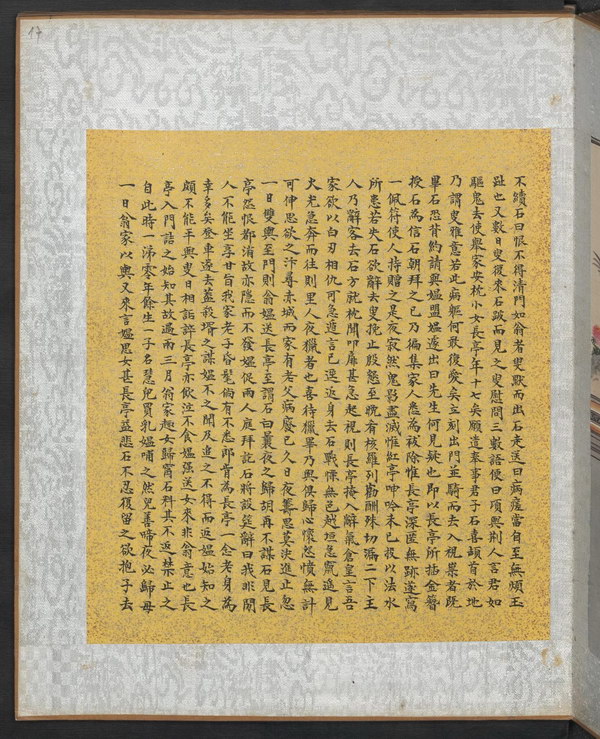 17
不續石曰恨不得清門如翁者叟默而出石走送曰病瘥當自至無煩玉
趾也又數日叟復來石跛而見之叟慰問三數語便曰頃與荆人言君如
驅鬼去使舉家安枕小女長亭年十七矣願遣奉事君子石喜頓首於地
乃謂叟雅意若此病軀何敢復愛矣立刻出門並騎而去入視祟者既
畢石恐背約請與媼盟媼遽出曰先生何見疑也即以長亭所插金簪
授石為信石朝拜之已乃徧集家人悉為祓除惟長亭深匿無跡遂寫
一佩符使人持贈之是夜寂然鬼影盡滅惟紅亭呻吟未已投以法水
所患若失石欲辭去叟挽止殷懇至晚肴核羅列勸酬殊切漏二下主
人乃辭客去石方就枕聞叩扉甚急起視則長亭掩入辭氣倉皇言吾
家欲以白刃相仇可急遁言已逕返身去石戰慄無色越垣急竄遙見
火光急奔而往則里人夜獵者也喜待獵畢乃與俱歸心懷怨憤無計
可伸思欲之汴尋赤城而家有老父病廢已久日夜籌思莫決進止忽
一日雙輿至門則翁媼送長亭至謂石曰曩夜之歸胡再不謀石見長
亭怨恨都消故亦隱而不發媼促兩人庭拜訖石將設筵辭曰我非閒
人不能坐享甘旨我家老子昏髦倘有不悉郎肯為長亭一念老身為
幸多矣登車遂去蓋殺壻之謀媼不之聞及追之不得而返媼始知之
頗不能平與叟日相詬誶長亭亦飲泣不食媼強送女來非翁意也長
亭入門詰之始知其故過兩三月翁家趣女歸甯石料其不返禁止之
自此時一涕零年餘生一子名慧兒買乳媼哺之然兒善啼夜必歸母
一日翁家以輿又來言媼思女甚長亭益悲石不忍復留之欲抱子去